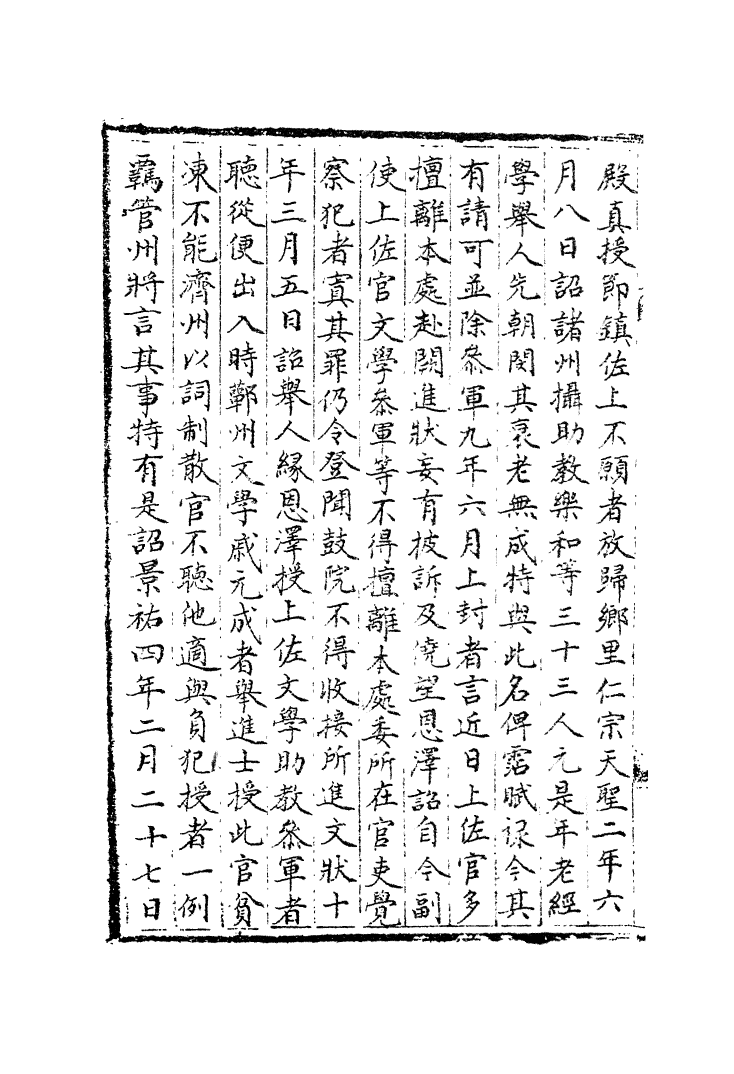 殿真授節鎮佐上不願者放歸鄉里仁宗天聖二年六
月八日詔諸州攝助教樂和等三十三人元是年老經
學舉人先朝閔其衰老無成特與此名俾霑賦祿今其
有請可並除叅軍九年六月上封者言近日上佐官多
擅離本處赴闕進狀妄有披訴及僥望恩澤詔自今副
使上佐官文學叅軍等不得擅離本處委所在官吏覺
察犯者寘其罪仍令登聞鼓院不得收接所進文狀十
年三月五日詔舉人緣恩澤授上佐文學助教叅軍者
聽從便出入時鄿州文學戚元成者舉進士授此官貧
凍不能濟州以詞制散官不聽他適與負犯授者一例
羈管州將言其事特有是詔景祐四年二月二十七日